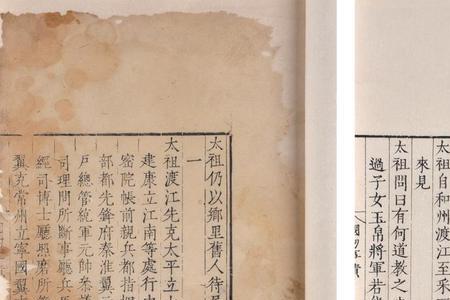 太祖自和州渡江至采
來見
太祖問曰有何道教之
過子女玉帛將軍若
國初事蹟
太祖仍以鄉里舊人待
一
太祖渡江先克太平立
建康立江南等處行中
密院帳前親兵都指
部都先鋒府秦淮翼元
戶總管統軍元帥
司理問所斷事廳兵
經司博士廳照磨所
翼克常州立寧國翼